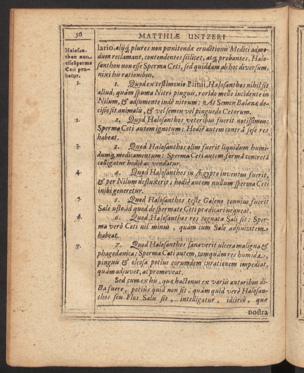 36 MATTHIÆ UNTZERI
lario, alijq; plures non pœnitendæ eruditionis Medici admo-
dum reclamant, contendentes scilicet, atq; probantes, Halo-
santhon non esse Sperma Ceti, sed quiddam ab hoc diversum,
nixi his rationibus.
Halosan-
thon non
esse Sperma
Ceti pro-
batur.
1. 1. Quod ex testimonio Plinii, Halosanthos nihil sit
aliud, quàm spuma Nitri pinguis,
Nilum, & adjumento indè nitrum: At Semen Balenæ de-
cisio sit animalis, & vel semen vel pingue de Cetorum.
2. 2. Quod Halosanthos veteribus fuerit notissimum:
Sperma Ceti autem ignotum: Hodiè autem contrà sese res
habeat.
3. 3. Quod Halosanthos olim fuerit liquidum humi-
dumq; medicamentum: Sperma Ceti autem formâ concretâ
colligatur hodiè ac venundatur.
4. 4. Quod Halosanthos in Ægypto inventus fuerit,
& per Nilum defluxerit; hodiè autem nullum sperma Ceti
inibi generetur.
5. 5. Quod Halosanthos teste Galeno tenuius fuerit
Sale usto: id quod de spermate Ceti prædicari nequeat.
6. 6. Quod Halosanthos res cognata Sali sit: Sper-
ma verò Ceti nil minus, quàm cum Sale
habeat.
7. 7. Quod Halosanthos sanaverit ulcera maligna &
phagedænica; Sperma Ceti autem, tanquam res humida,
pinguis & oleosa potius eorundem curationem impediat,
quàm adjuvet, ac promoveat.
Sed cum ex his, quæ hactenus ex variis autoribus di-
potius quid non sit, quàm quid verè Halosan-
thos seu Flos Salis sit, intelligatur, idcirco, quæ
nostra